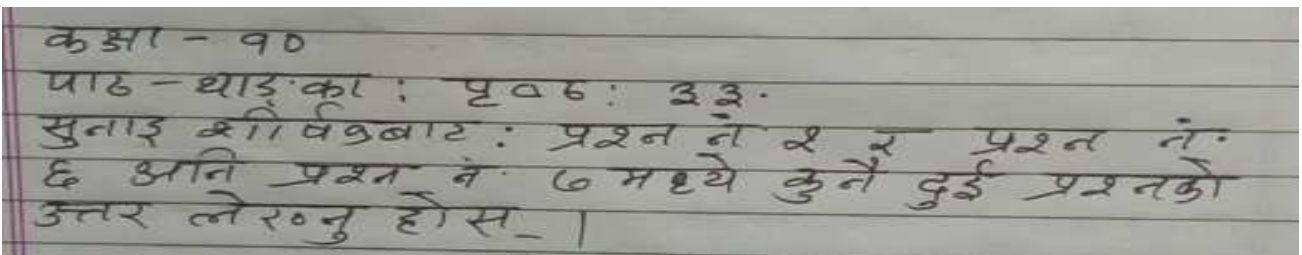 कक्षा - १०
पाठ - थाङ्का : पृष्ठ : ३३.
सुनाइ शीर्षकबाट : प्रश्न नं २ र प्रश्न नं.
६ अनि प्रश्न नं. ७ मध्ये कुनै दुई प्रश्नको
उत्तर लेख्नु होस् ।